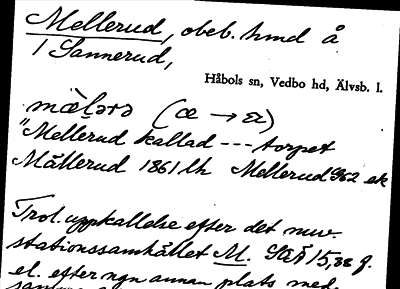 Mellerud, obeb. hmd å
/ Sannerud,
Håbols sn, Vedbo hd, Älvsb. l.
mæ̀lərə (æ → ɛ)
"Mellerud kallad --- torpet
Mällerud 1861 lh Mellerud 962 ek
Trol. uppkallelse efter det nuv.
stationssamhället M. SOÄ 15, f.
el. efter ngn annan plats med